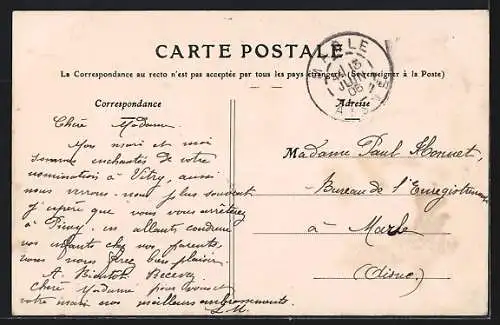 CARTE POSTALE
La Correspondance au recto n'est pas acceptée par tous les pays étrangers (Se renseigner à la Poste)
Correspondance
Adresse
MARLE
13
JUIN
06
AISNE
Chère Madame
Mon mari et moi
sommes enchantés de votre
nomination à Vitry, aussi
nous verrons nous plus souvent
J'espère que vous vous arrêterez
à en allant conduire
vos enfants chez vos parents.
vous nous ferez bien plaisir.
A Bientôt. Recevez
Chère Madame pour vous et
votre mari nos meilleurs embrassements.
L M.
Madame Paul
Bureau de l'Enregistrement
à Marle
(Aisne)